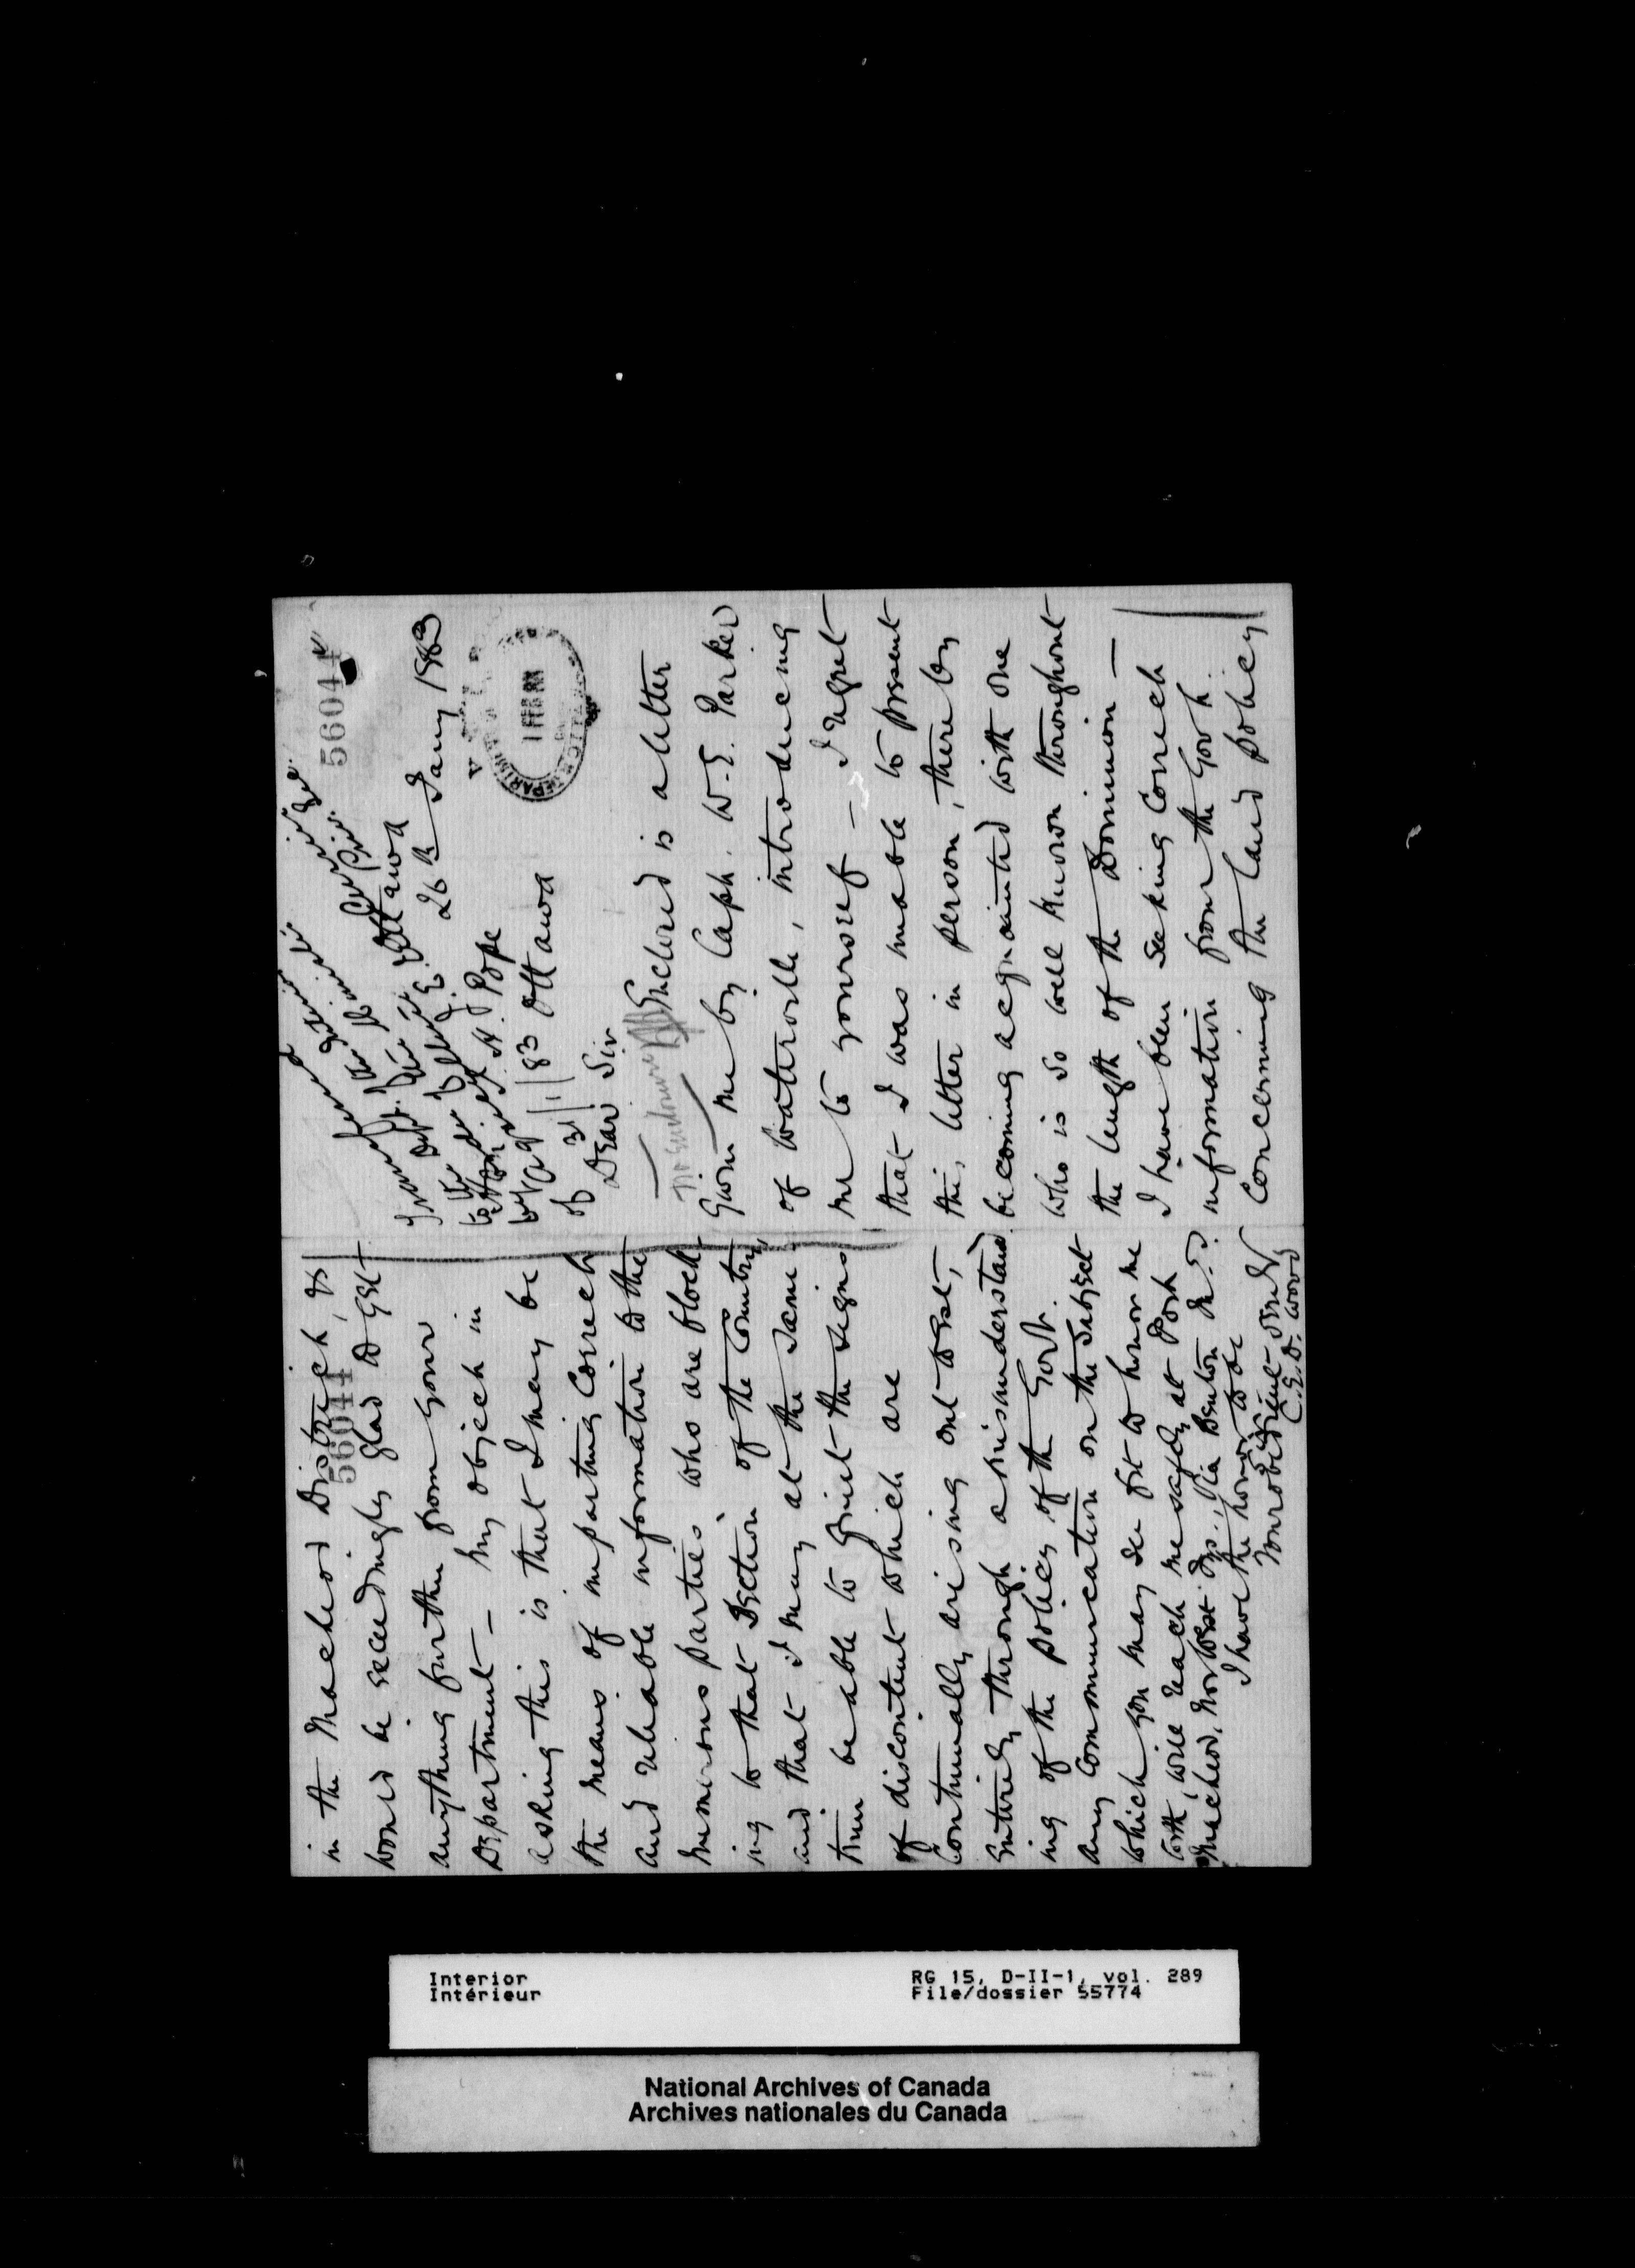 56044
Ottawa
26th Jany 1883
J. H. Pope
Ottawa
Dear Sir
No enclosure
Enclosed is a letter
Given me by Capt. W. E. Parker
of Waterville, introducing
me to yourself – I regret
that I was unable to present
this letter in person, thereby
becoming acquainted with one
who is so well known throughout
the length of the Dominion —
I have been seeking Correct
information from the Govt.
Concerning the land policy
in the Macleod District, &
56044
would be exceedingly glad to get
anything further from your
Department – My object in
asking this is that I may be
the means of imparting Correct
and reliable information to the
numerous parties who are flock-
ing to that Section of the Country,
and that I may at the same
time be able to quiet the signs
of discontent which are
Continually arising out West,
Entirely through a misunderstand
ing of the policy of the Govt.
Any Communication on the Subject
which you may see fit to honor me
with, will reach me safely at Fort
Macleod, Norwest Ty., Via Benton M.T.
I have the honor to be
Your obedient servt
C. E. D. Wood
Interior
Intérieur
RG 15, D-II-1, vol. 289
File/dossier 55774
National Archives of Canada
Archives nationales du Canada